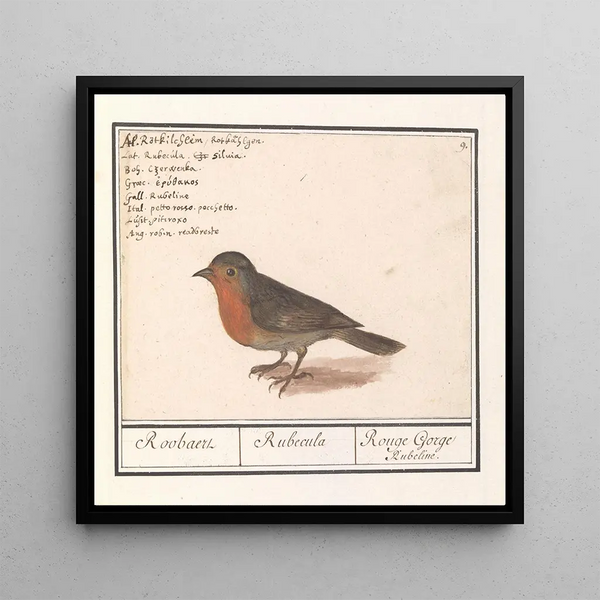 Al. Rotkilchlein, Rotkählgen.
9.
Lat. Rubecula. Silvia.
Boh. Czerwenka.
Graec. ἐρύθακος
Gall. Rubeline
Ital. petto rosso. pecchetto.
Lusit. pitiroxo
Ang. robin. readbreste
Roobaert
Rubecula
Rouge Gorge
Rubeline.